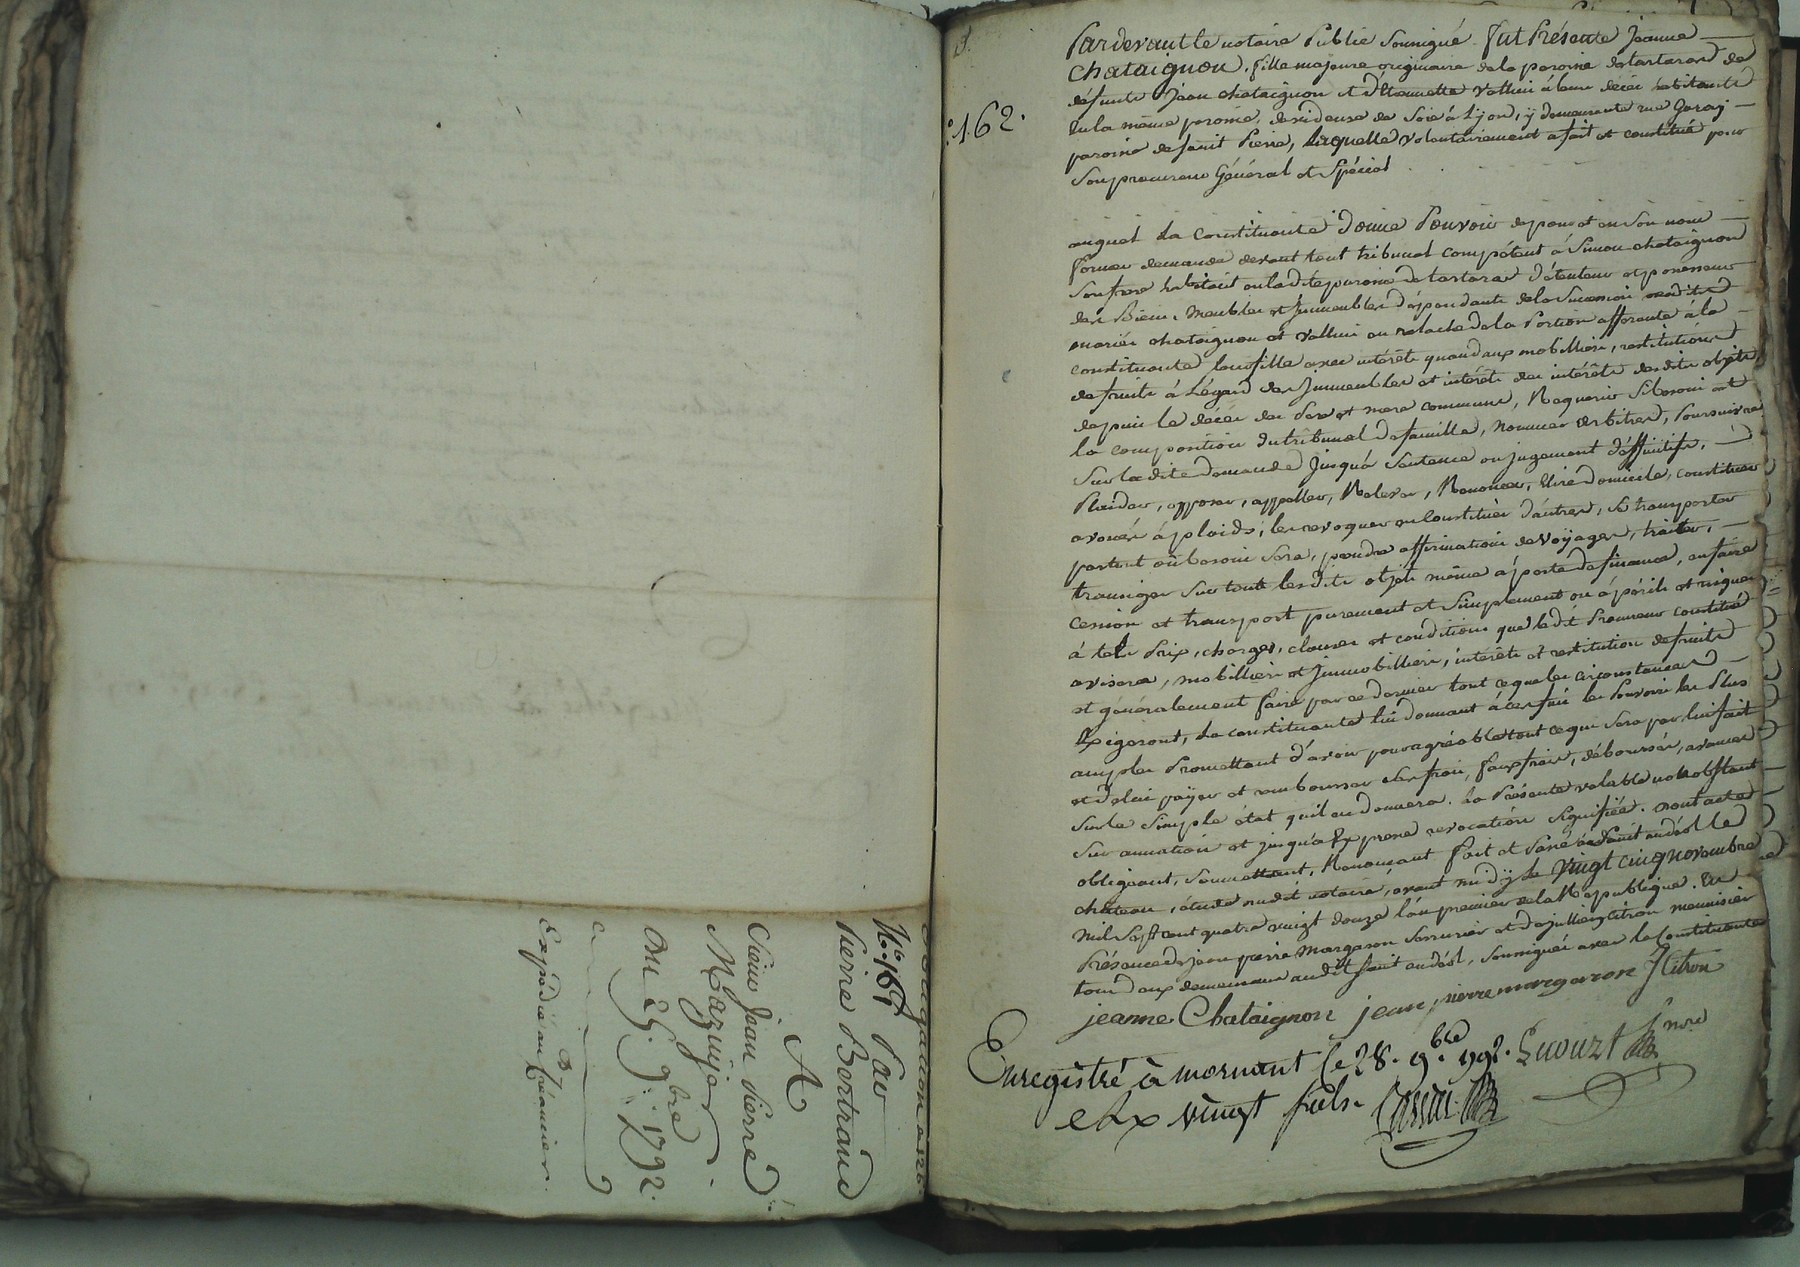 obligation a 126
N.o 161 Par
Pierre Bertrand
A
Sieur Jean Pierre
Mazuyer.
Du 25. 9.bre 1792.
Expédié au Créancier.
N.o 162.
Pardevant le notaire Public Soussigné fut Présente Jeanne
Chataignon, fille majeure originaire de la paroisse de tartaras de
défunts Jean chataignon et d'Etiennette Vallin à leur décès habitants
en la même paroisse, devideuse de Soie à Lyon, y demeurante rue
paroisse de Saint Pierre, laquelle volontairement a fait et constitué pour
Son procureur Général et Spécial
auquel la Constituante donne Pouvoir de pour et en Son nom
former demande devant tout tribunal compétent à Simon chataignon
Son frere habitant en la dite paroisse de tartaras détenteur et possesseur
des Biens, Meubles et Immeubles dépendants de la Succession desdits
mariés chataignon et Vallin en relache de la Portion afferante à la
constituante leur fille avec intérêts quand aux mobilliers, restitutions
de fruits à L'égard des Immeubles et intérêts des intérêts desdits objets
depuis le décès des Pere et mere communs, Requerir Si besoin est
la composition du tribunal de famille, nommer arbitres, Poursuivre
Sur ladite demande Jusqu'à Sentence ou jugement déffinitifs,
Plaider, opposer, appeller, Relever, Renoncer, Elire domicile, constituer
avoués à plaids, les revoquer en Constituer d'autres, Se transporter
partout où besoin Sera, prendre affirmation de Voyages, traiter,
transiger Sur tout lesdits objets même à porte de finance, en faire
cession et transport purement et Simplement ou à périls et risques
à tels Prix, charges, clauses et conditions que ledit Procureur constitué
avisera, mobilliers et Immobilliers, intérêts et restitution de fruits
et généralement faire par ce dernier tout ce que les circonstances
Exigeront, la constituante lui donnant à ces fins les Pouvoirs les Plus
amples Promettant d'avoir pour agréable tout ce qui Sera par lui fait
et de lui payer et rembourser Ses frais, faux frais, déboursés, avances
Sur le Simple état qu'il en donnera. La Présente valable nonobstant
Sur annation et jusqu'à Expresse revocation Signifiée. Dont acte
obligeant, Soumettant, Renonçant fait et Passé à Saint andéol le
château, étude dudit notaire, avant midy le vingt cinq novembre
mil Sept cent quatre vingt douze l'an premier de la République. En
Présence de jean pierre Margaron Serrurier et de jullien Citron menuisier
tous deux demeurants audit Saint andéol, Soussignés avec la Constituante
jeanne Chataignon jean pierre margaron J Citron
Enregistré à mornant le 28. 9.bre 792. nore
vingt sols.